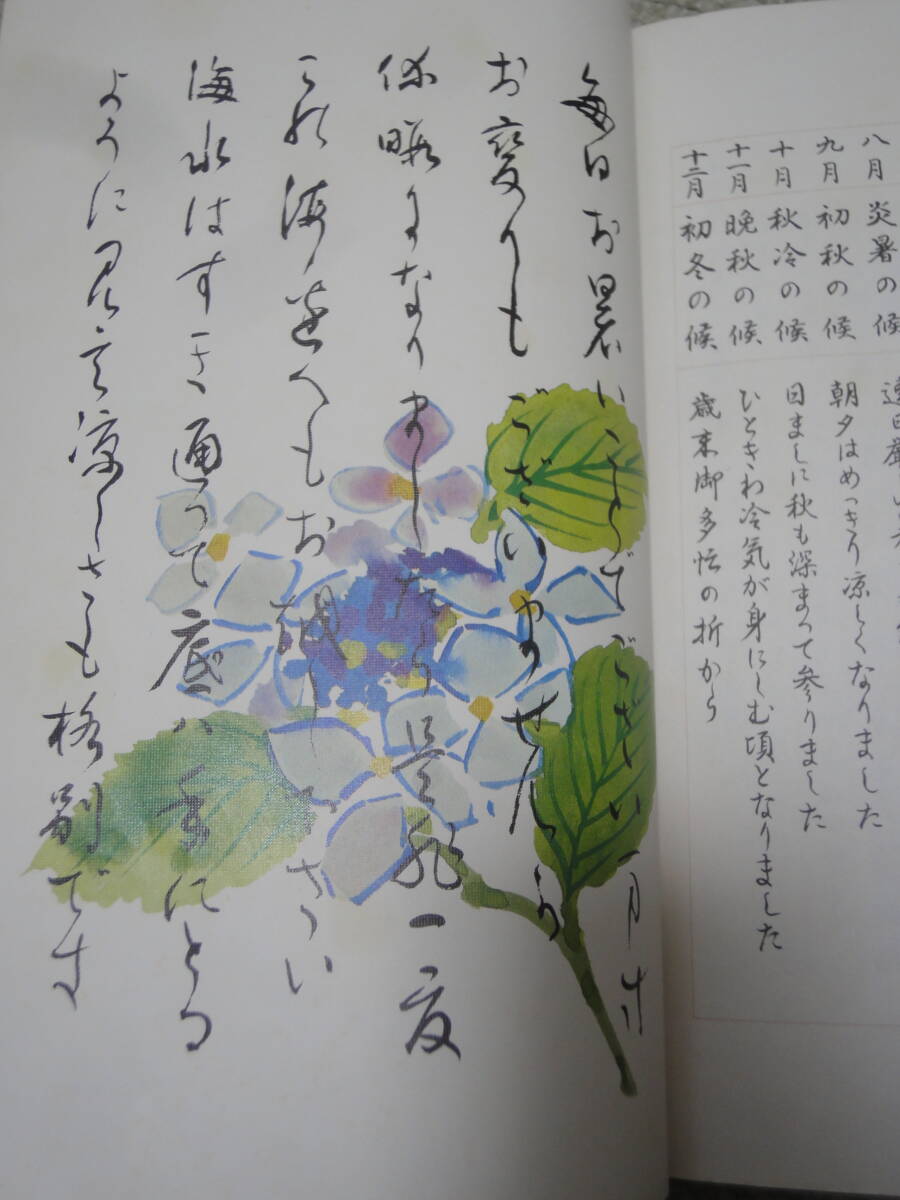 八月 炎暑の候
九月 初秋の候 朝夕はめっきり涼しくなりました
十月 秋冷の候 日ましに秋も深まって参りました
十一月 晩秋の候 ひときわ冷気が身にしむ頃となりました
十二月 初冬の候 歳末御多忙の折から
毎日お暑いことでござい
お変りもございませんか
休暇になりましたら是非一度
この海辺へもお越し下さい
海水はすき通って底は手にとる
ように見え涼しさも格別です